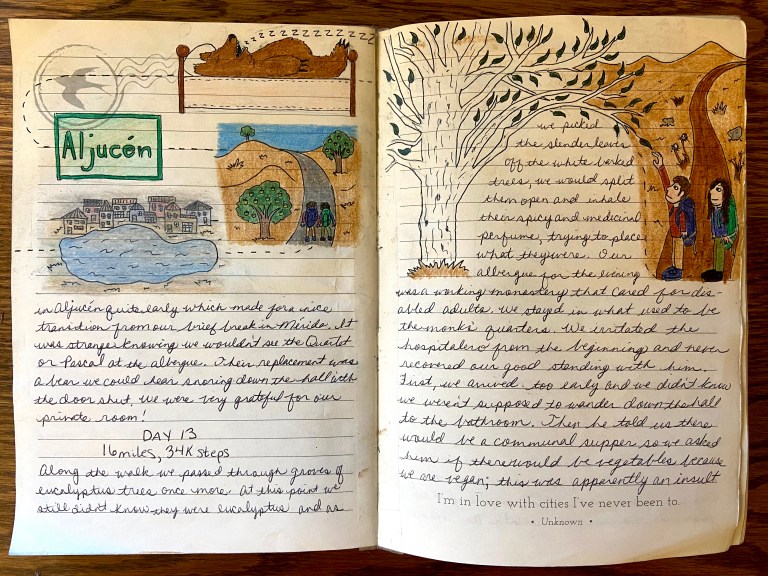 zzzzzzzzzzzzzzz
Aljucén
in Aljucén quite early which made for a nice
transition from our brief break in Mérida. It
was strange knowing we wouldn't see the Quartet
or Pascal at the albergue. Their replacement was
a bear we could hear snoring down the hall with
the door shut, we were very grateful for our
private room!
DAY 13
16 miles, 34K steps
Along the walk we passed through groves of
eucalyptus trees once more. At this point we
still didn't know they were eucalyptus and as
we picked
the slender leaves
off the white barked
trees, we would split
them open and inhale
their spicy and medicinal
perfume, trying to place
what they were. Our
albergue for the evening
was a working monastery that cared for dis-
abled adults. We stayed in what used to be
the monk's quarters. We irritated the
hospitalero from the beginning and never
recovered our good standing with him.
First, we arrived too early and we didn't know
we weren't supposed to wander down the hall
to the bathroom. Then he told us there
would be a communal supper so we asked
him if there would be vegetables because
we are vegan; this was apparently an insult
I'm in love with cities I've never been to.
• Unknown •